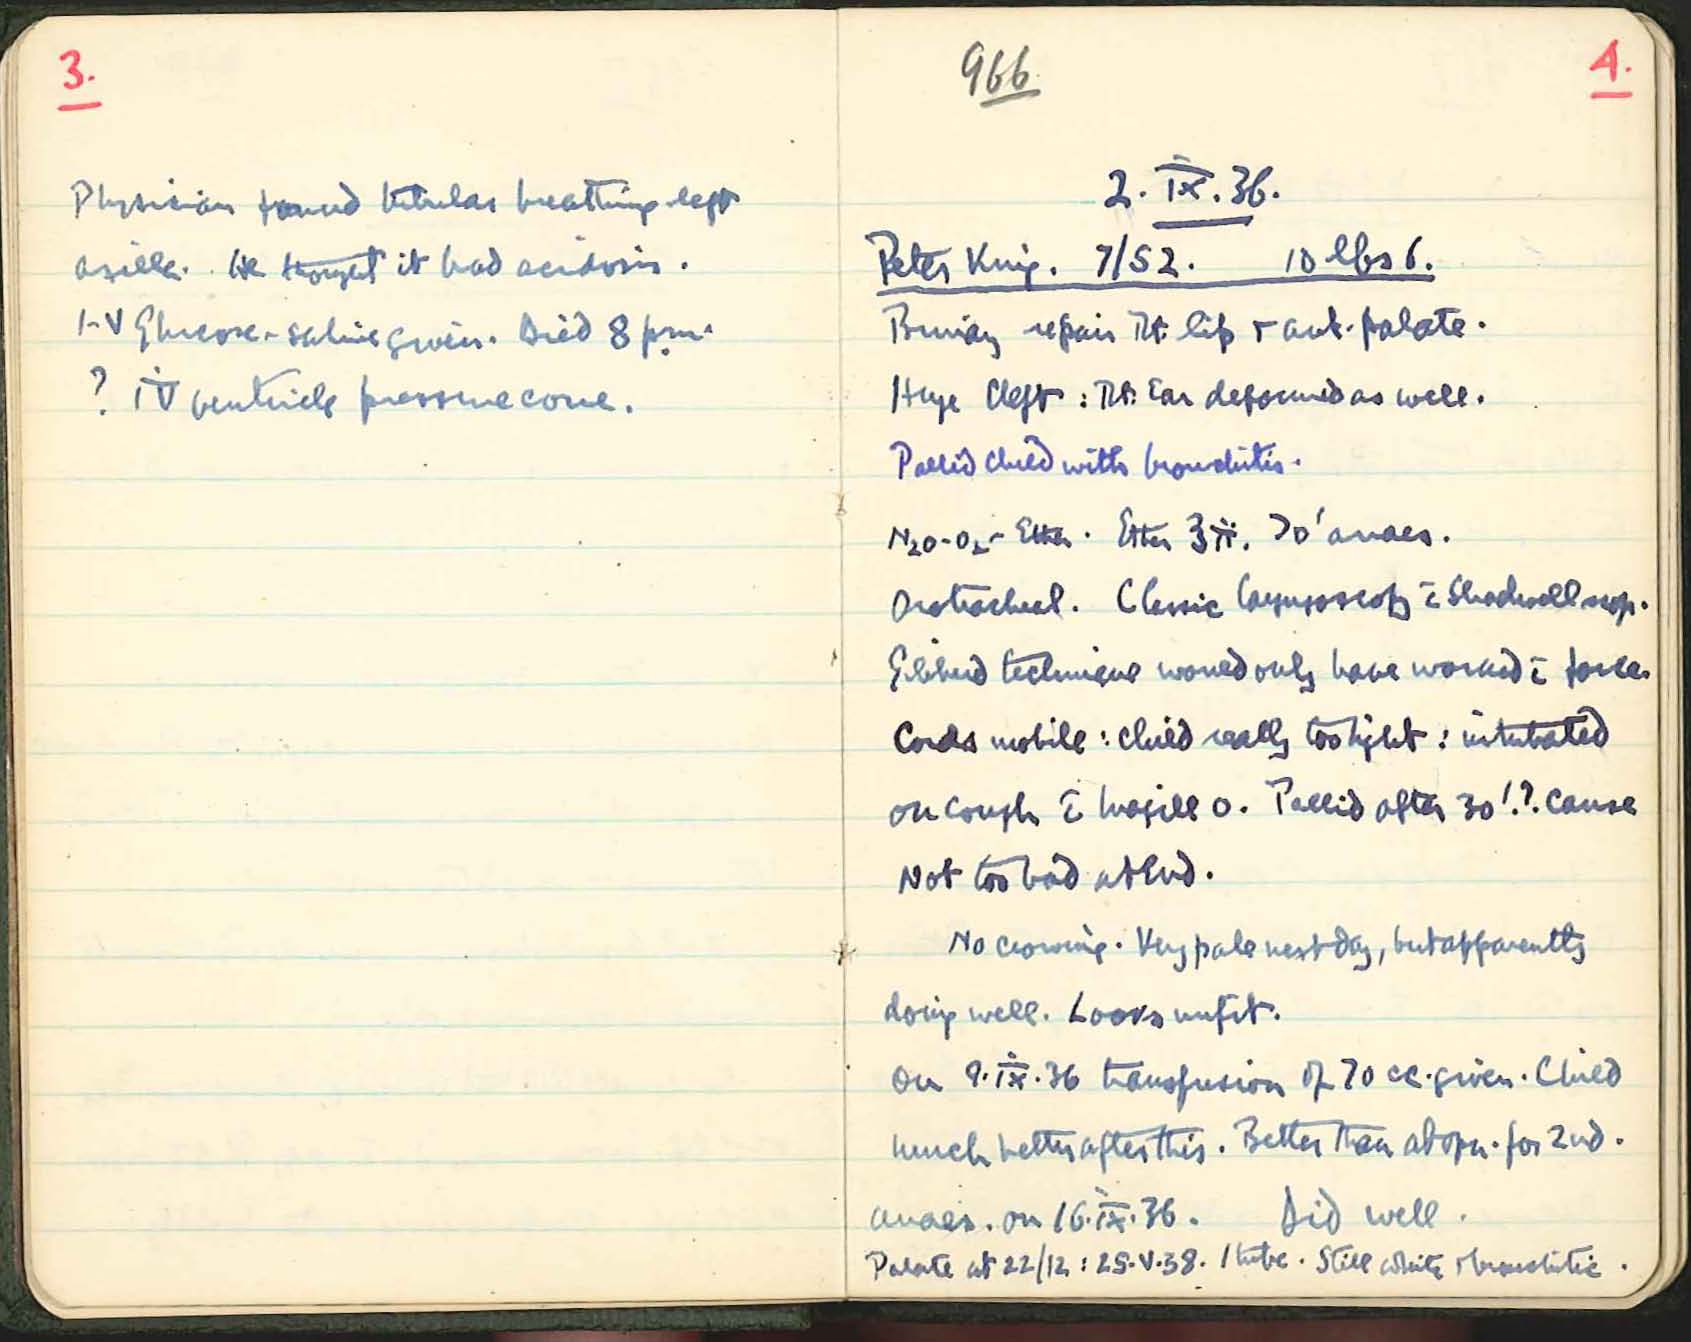 3.
Physician found tubular breathing left
axilla. He thought it had acidosis.
I-V Glucose-saline given. Died 8 p.m.
? IV ventricle pressure cone.
966
4.
2. IX. 36.
Peter King. 7/52. 10 lbs 6.
Primary repair Rt. lip + ant. palate.
Huge Cleft : Rt. Ear deformed as well.
Pallid child with bronchitis.
N2O-O2-Ether. Ether ℥ii. 70' anaes.
Orotracheal. Classic laryngoscopy c̄ Shadwell scop.
technique would only have worked c̄ force.
Cords mobile : child really too light : intubated
on cough c̄ Magill 0. Pallid after 30'. ?. Cause
Not too bad at End.
No crowing. Very pale next day, but apparently
doing well. Looks unfit.
On 9.IX.36 transfusion of 70 cc. given. Child
much better after this. Better than at opn. for 2nd.
anaes. on 16.IX.36. Did well.
Palate at 22/12 : 25.V.38. 1 tube. Still white + bronchitic.